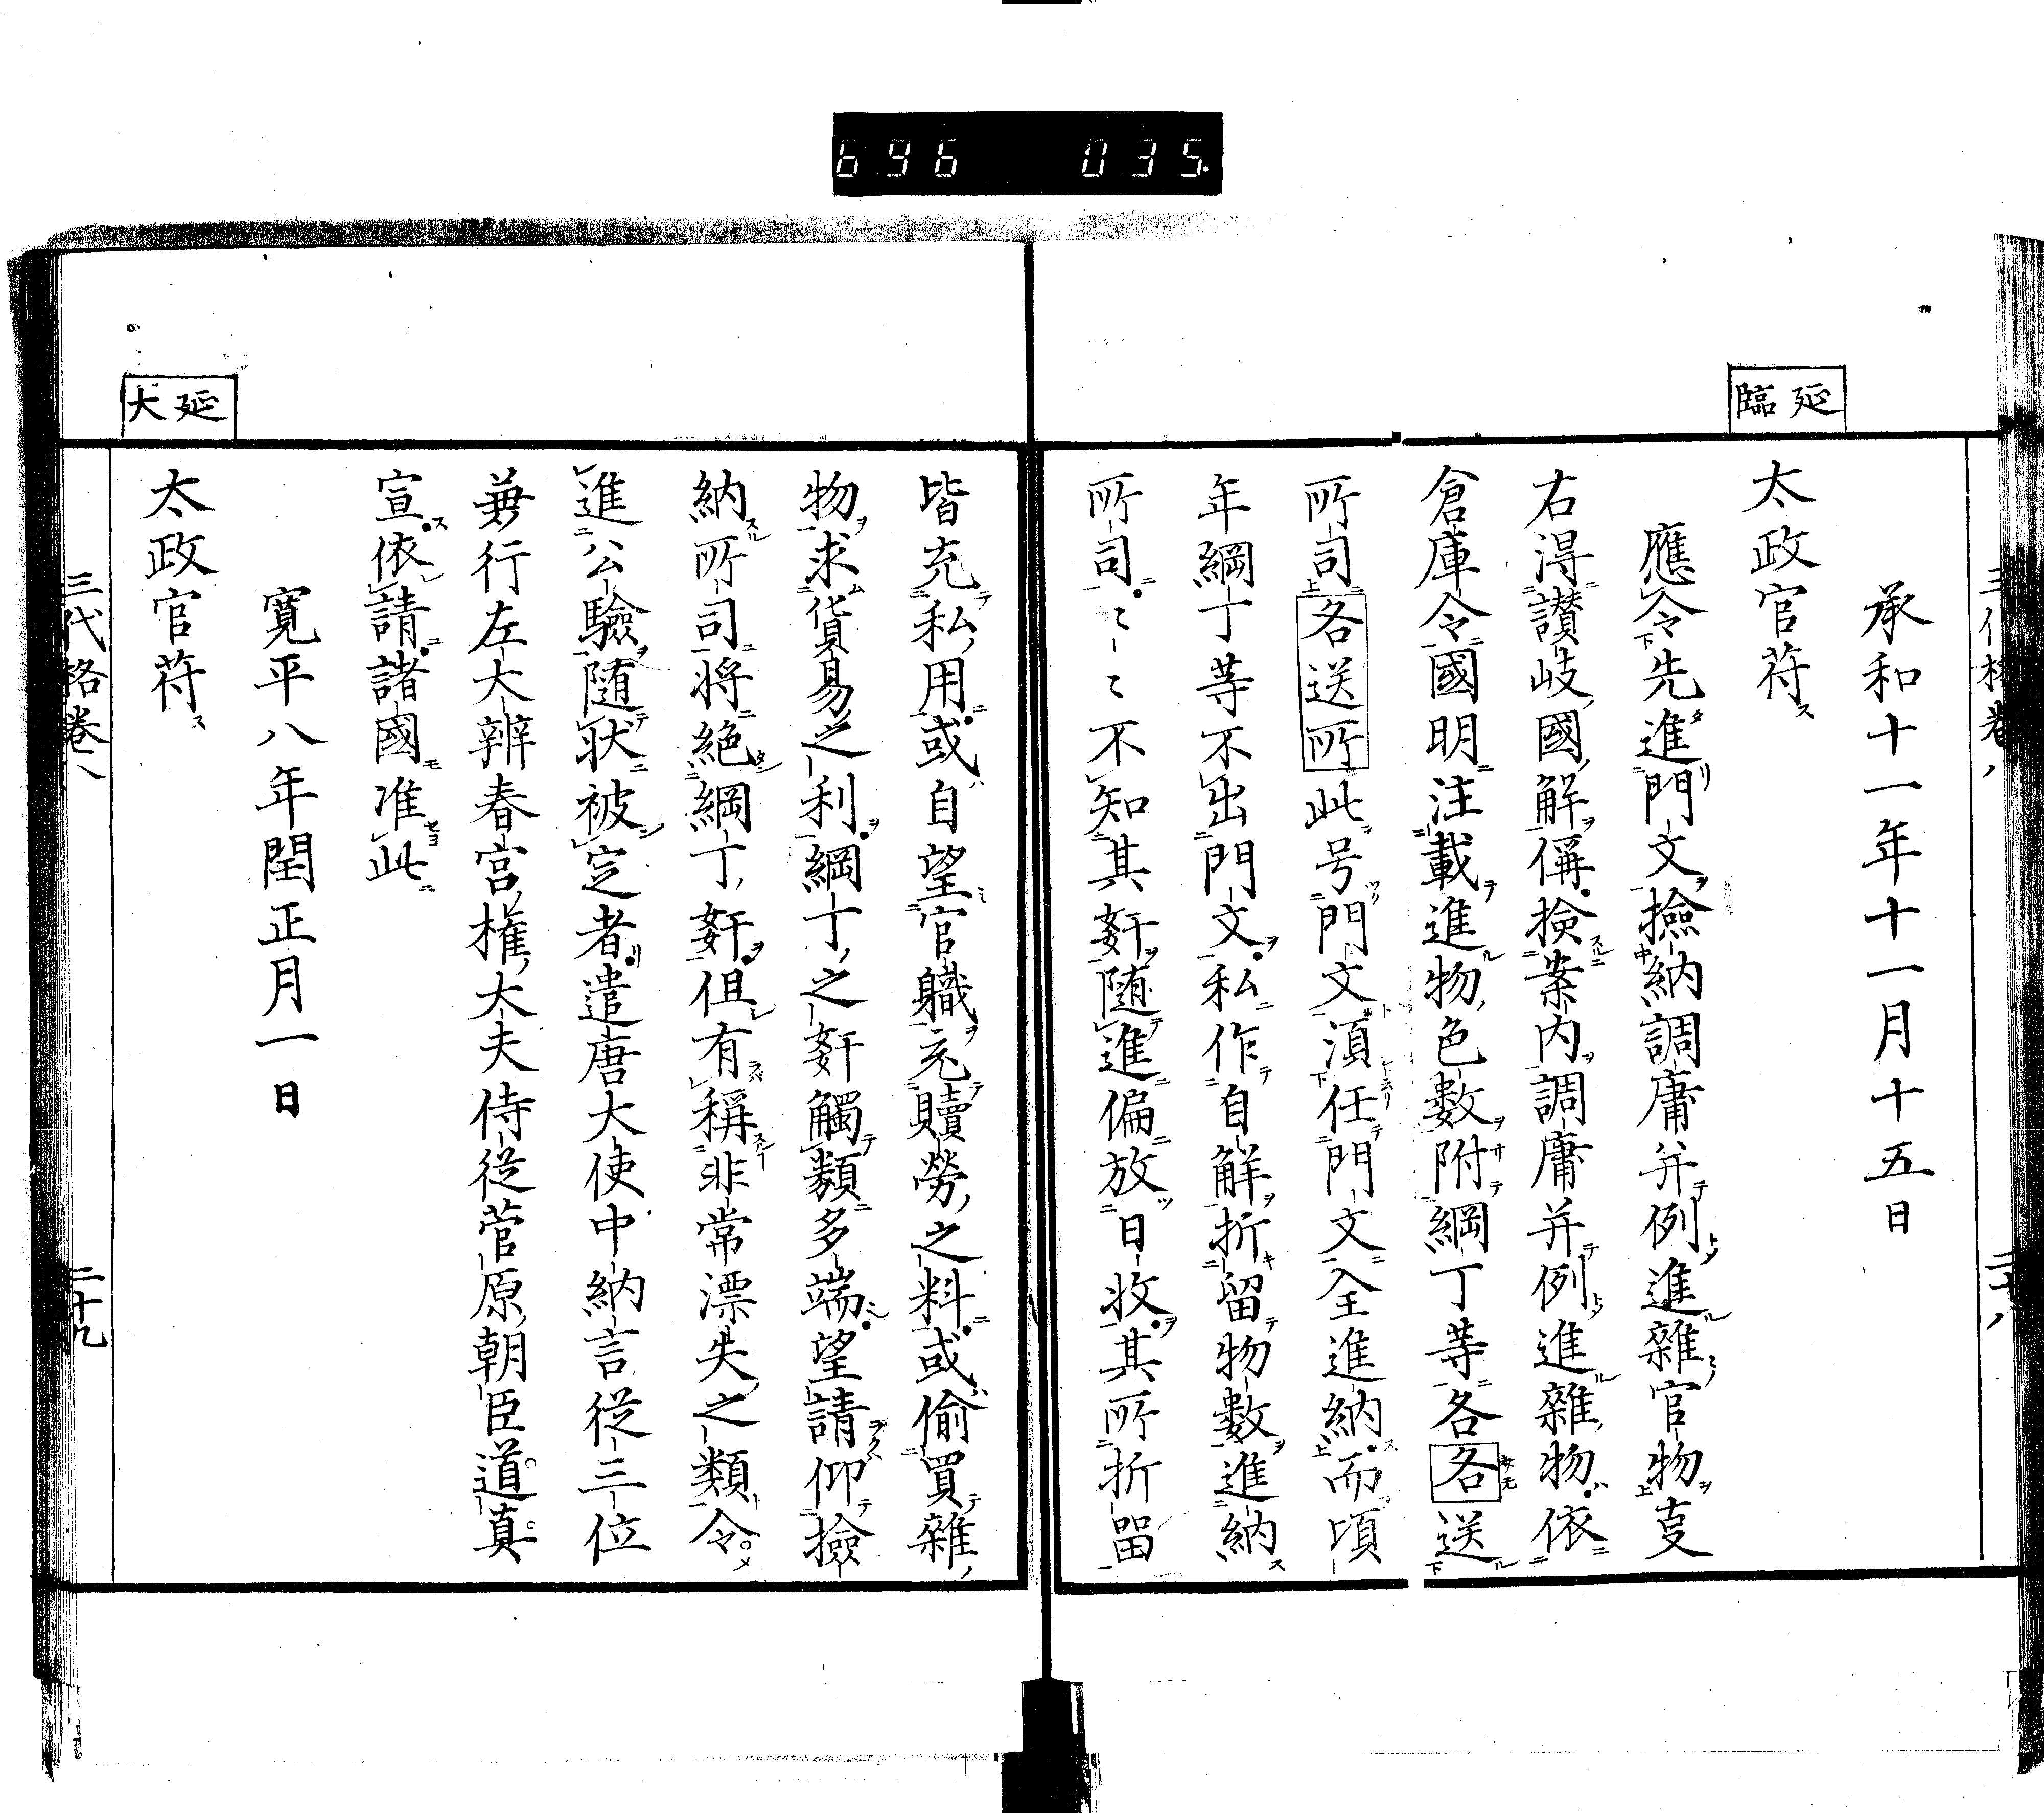 696 035
延臨
承和十一年十一月十五日
太政官苻ス
應令先進門文撿納調庸并例進雜官物㕝
右得讃岐國解偁撿案内調庸并例進雜物依
倉庫令國明注載進物色數附綱丁等各各送
所司各送所此号門文須任門文全進納而頃
年綱丁等不出門文私作自解折留物數進納
所司〻〻不知其奸随進偏放日收其所折留
皆充私用或自望官職充贖勞之料或偷買雜
物求貨易之利綱丁之奸觸類多端望請仰撿
納所司将絶綱丁奸但有稱非常漂失之類令
進公驗随状被定者遣唐大使中納言從三位
兼行左大辨春宮權大夫侍從菅原朝臣道真
宣依請諸國准此
寛平八年閏正月一日
延大
太政官苻ス
三代格卷八
二十九